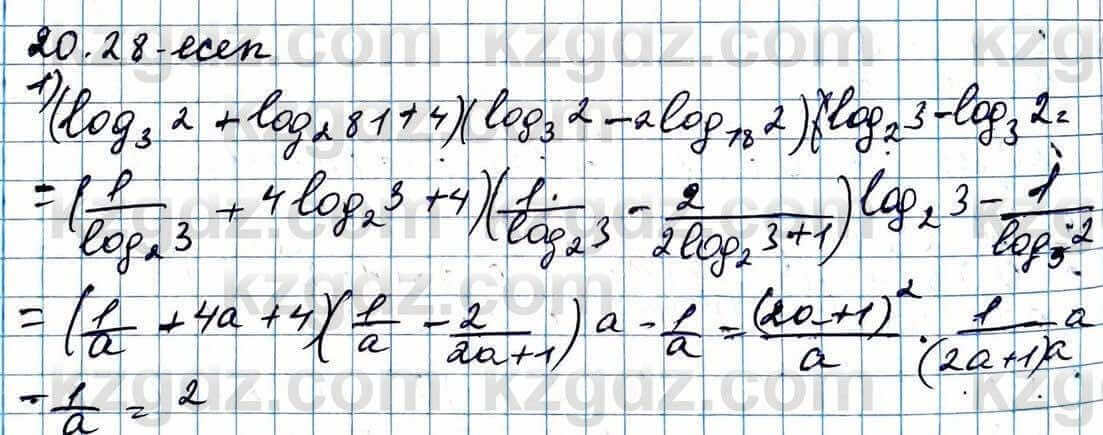 20.28-есеп
1) (log₃ 2 + log₂ 81 + 4)(log₃ 2 - 2log₁₈ 2) log₂ 3 - log₃ 2 =
= (1/log₂ 3 + 4log₂ 3 + 4)(1/log₂ 3 - 2/(2log₂ 3 + 1)) log₂ 3 - 1/log₃ 2
= (1/a + 4a + 4)(1/a - 2/(2a+1)) a - 1/a = (2a+1)²/a · 1/((2a+1)a) a
- 1/a = 2